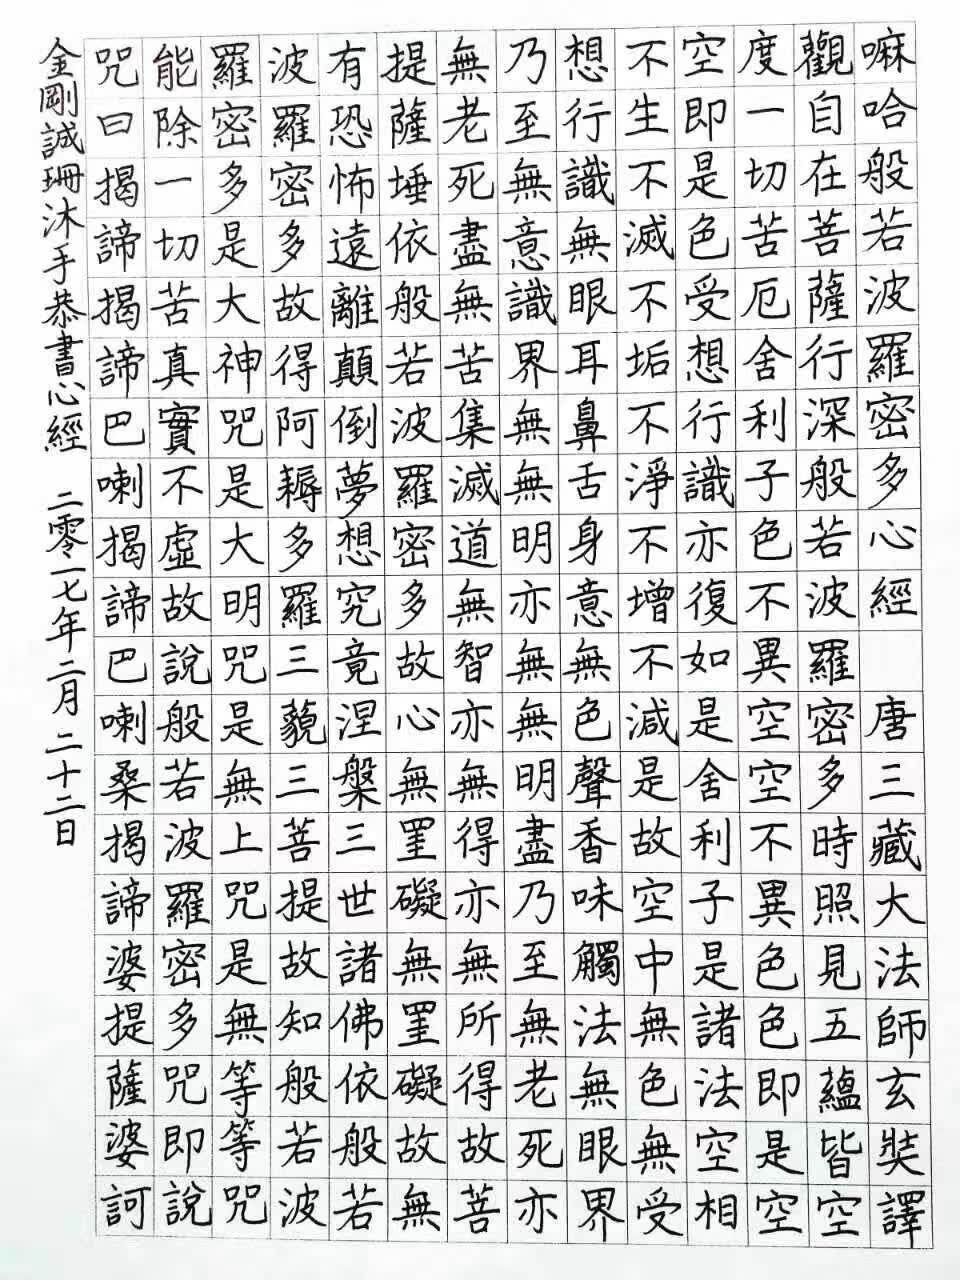 嘛哈般若波羅密多心經 唐三藏大法師玄奘譯
觀自在菩薩行深般若波羅密多時照見五蘊皆空
度一切苦厄舍利子色不異空空不異色色即是空
空即是色受想行識亦復如是舍利子是諸法空相
不生不滅不垢不淨不增不減是故空中無色無受
想行識無眼耳鼻舌身意無色聲香味觸法無眼界
乃至無意識界無無明亦無無明盡乃至無老死亦
無老死盡無苦集滅道無智亦無得亦無所得故菩
提薩埵依般若波羅密多故心無罣礙無罣礙故無
有恐怖遠離顛倒夢想究竟涅槃三世諸佛依般若
波羅密多故得阿耨多羅三藐三菩提故知般若波
羅密多是大神咒是大明咒是無上咒是無等等咒
能除一切苦真實不虛故說般若波羅密多咒即說
咒曰揭諦揭諦巴喇揭諦巴喇桑揭諦婆提薩婆訶
金剛誠珊沐手恭書心經 二零一七年二月二十二日